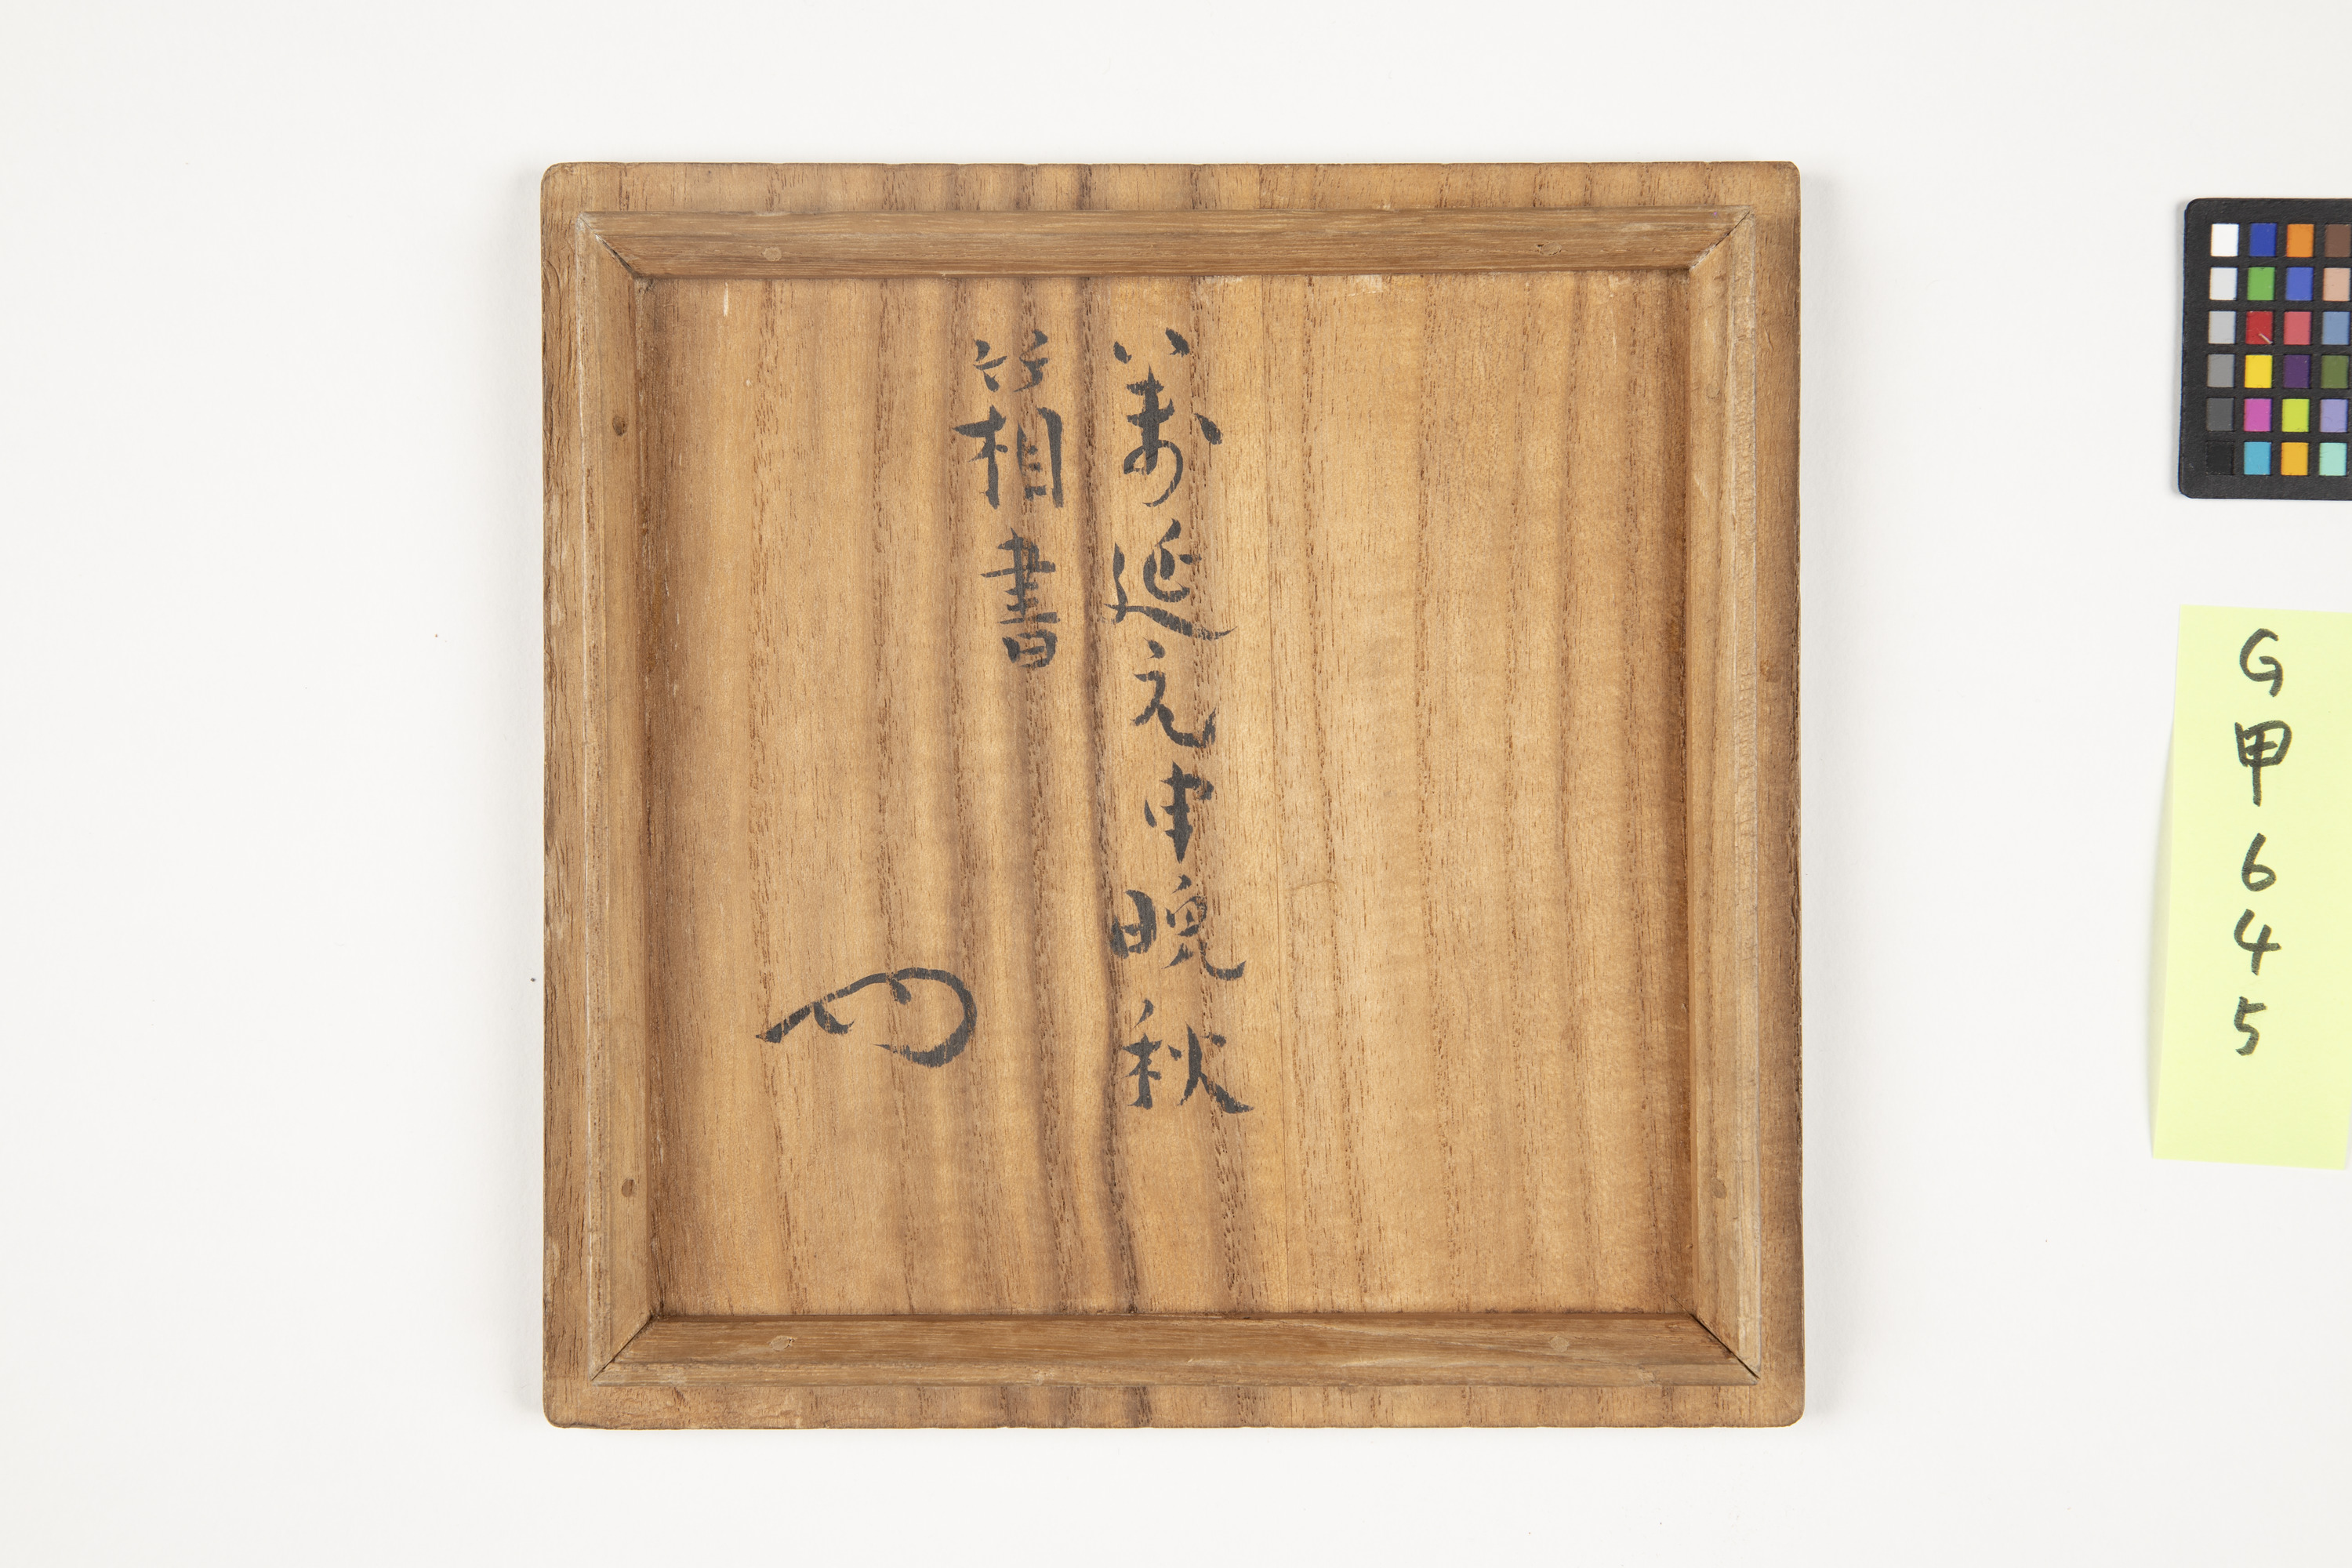 萬延元年晩秋
箱書
G甲645